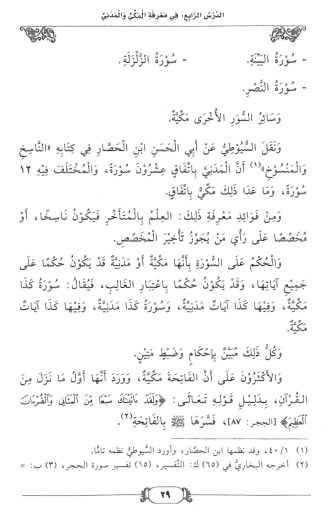 الدَّرْسُ الرَّابِعُ: فِي مَعْرِفَةِ الْمَكِّيِّ وَالْمَدَنِيِّ
- سُورَةُ الْبَيِّنَةِ. - سُورَةُ الزَّلْزَلَةِ.
- سُورَةُ النَّصْرِ.
وَسَائِرُ السُّوَرِ الْأُخْرَى مَكِّيَّةٌ.
وَنَقَلَ السُّيُوطِيُّ عَنْ أَبِي الْحَسَنِ ابْنِ الْحَصَّارِ فِي كِتَابِهِ «النَّاسِخِ
وَالْمَنْسُوخِ»(١) أَنَّ الْمَدَنِيَّ بِاتِّفَاقٍ عِشْرُونَ سُورَةً، وَالْمُخْتَلَفَ فِيهِ ١٢
سُورَةً، وَمَا عَدَا ذَلِكَ مَكِّيٌّ بِاتِّفَاقٍ.
وَمِنْ فَوَائِدِ مَعْرِفَةِ ذَلِكَ: الْعِلْمُ بِالْمُتَأَخِّرِ فَيَكُونُ نَاسِخًا، أَوْ
مُخَصِّصًا عَلَى رَأْيِ مَنْ يُجَوِّزُ تَأْخِيرَ الْمُخَصِّصِ.
وَالْحُكْمُ عَلَى السُّورَةِ بِأَنَّهَا مَكِّيَّةٌ أَوْ مَدَنِيَّةٌ قَدْ يَكُونُ حُكْمًا عَلَى
جَمِيعِ آيَاتِهَا، وَقَدْ يَكُونُ حُكْمًا بِاعْتِبَارِ الْغَالِبِ، فَيُقَالُ: سُورَةُ كَذَا
مَكِّيَّةٌ، وَفِيهَا كَذَا آيَاتٌ مَدَنِيَّةٌ، وَسُورَةُ كَذَا مَدَنِيَّةٌ، وَفِيهَا كَذَا آيَاتٌ
مَكِّيَّةٌ.
وَكُلُّ ذَلِكَ مُبَيَّنٌ بِإِحْكَامٍ وَضَبْطٍ مَتِينٍ.
وَالْأَكْثَرُونَ عَلَى أَنَّ الْفَاتِحَةَ مَكِّيَّةٌ، وَوَرَدَ أَنَّهَا أَوَّلُ مَا نَزَلَ مِنَ
الْقُرْآنِ، بِدَلِيلِ قَوْلِهِ تَعَالَى: ﴿وَلَقَدْ ءَاتَيْنَٰكَ سَبْعًا مِّنَ ٱلْمَثَانِى وَٱلْقُرْءَانَ
ٱلْعَظِيمَ﴾ [الحجر: ٨٧]، فَسَّرَهَا ﷺ بِالْفَاتِحَةِ(٢).
(١) ٤٠/١، وقد نظمها ابن الحصّار، وأورد السُّيوطي نظمه تامًّا.
(٢) أخرجه البخاريّ في (٦٥) ك: التَّفسير، (١٥) تفسير سورة الحجر، (٣) ب: =
٢٩